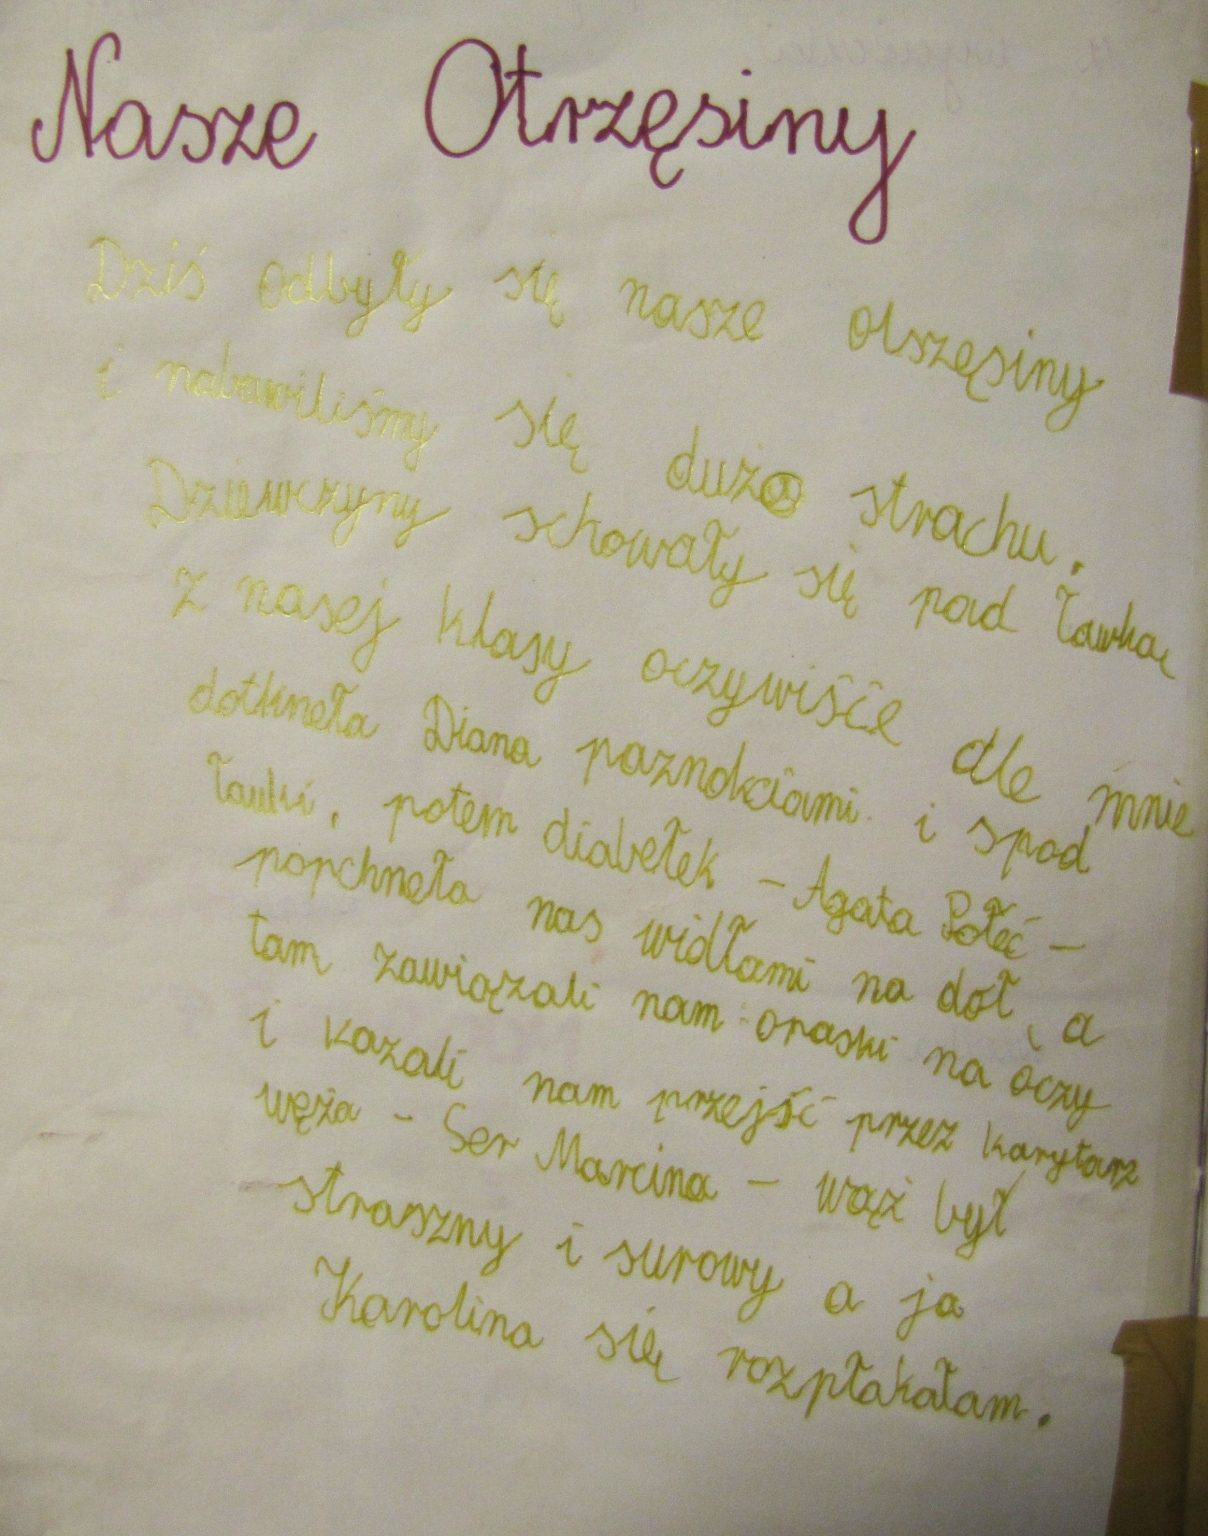 Nasze Otrzęsiny
Dziś odbyły się nasze otszęsiny
i nabawiliśmy się dużo strachu.
Dziewczyny schowały się pod ławką
z nasej klasy oczywiśće ale mnie
dotkneła Diana paznokciami i spod
ławki, potem diabełek - Agata Połeć -
popchneła nas widłami na doł, a
tam zawiązali nam opaski na oczy
i kazali nam przejść przez karytarz
węża - Ser Marcina - wąż był
straszny i surowy a ja
Karolina się rozpłakałam.